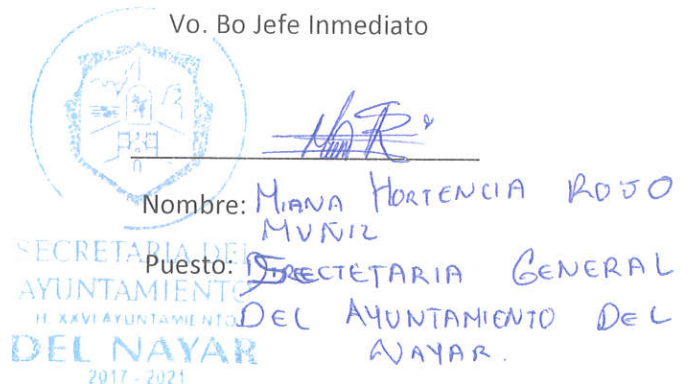 Vo. Bo Jefe Inmediato
Nombre: MIANA HORTENCIA ROJO
MUÑIZ
Puesto: SECTETARIA GENERAL
DEL AYUNTAMIENTO DEL
NAYAR.
SECRETARIA DEL
AYUNTAMIENTO
H. XXVI AYUNTAMIENTO
DEL NAYAR
2017 - 2021